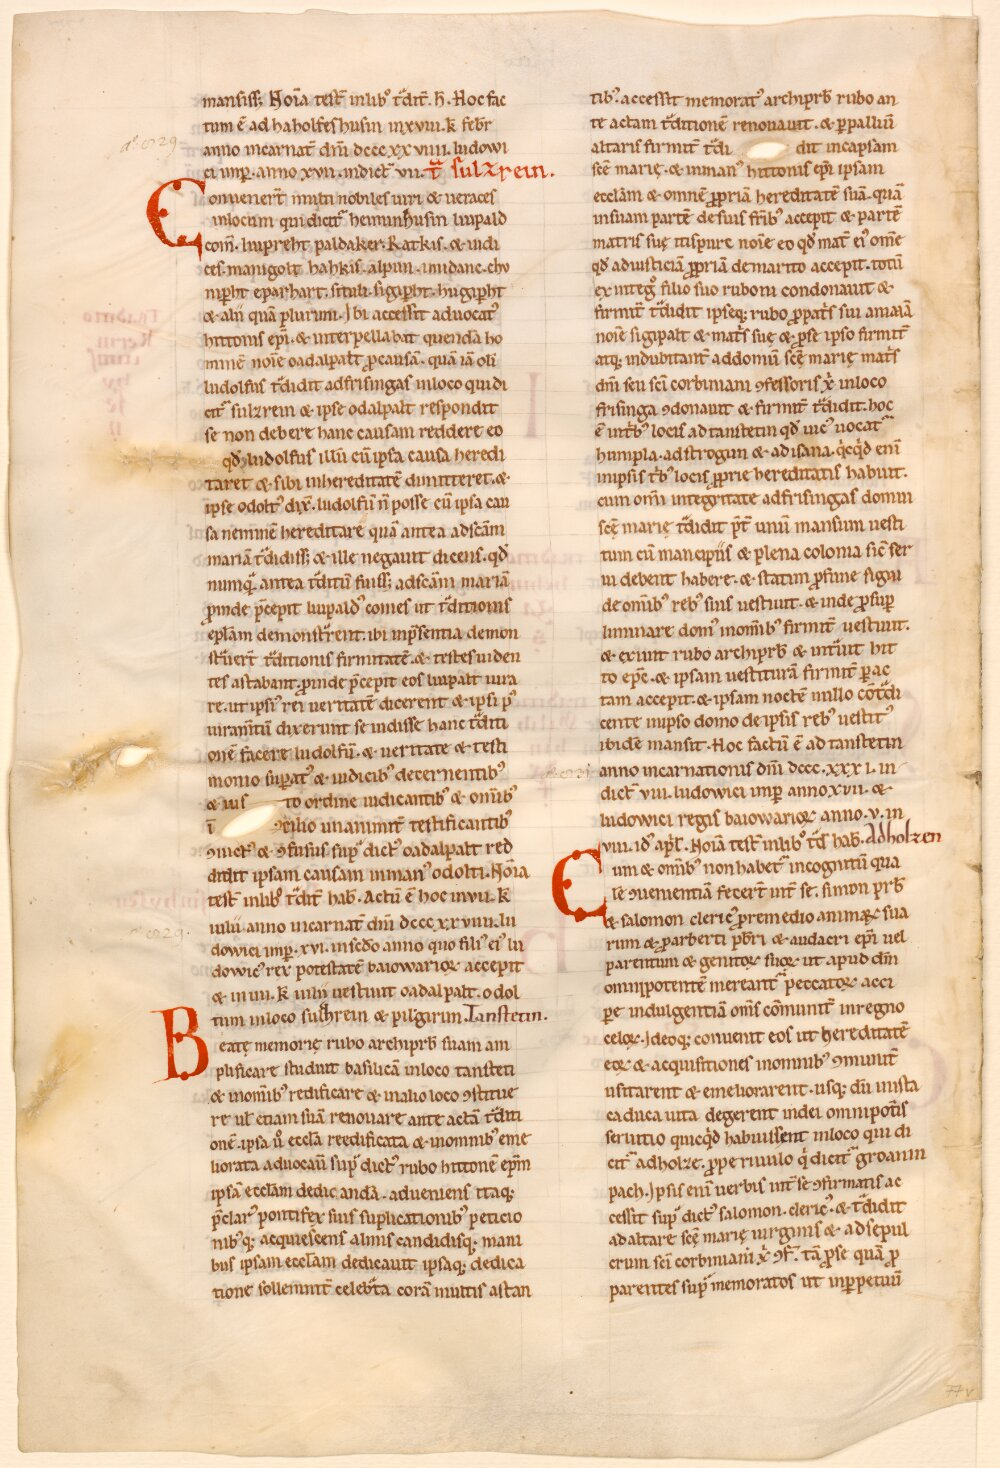 mansiss; Noīa test̄ inlib᾽ t͛dit̄. H̄. Hoc fac
tum ē ad haholfeshusin inxviii. k febr̄
anno incarnat̄ dn̄i dccc xx viiii. ludowi
ci imp̄. anno xvii. indict̄ vii. T͛ sulzrein.
Conuenert̄ multi nobiles uiri & ueraces
inlocum qui dicit᾽ heiminhusin liupald
com̄. liupreht paldaker. Ratkis. & iudi
ces. manigolt hahkis. alpun. imidanc. chu
nip̄ht eparhart. situli. sigip̄ht. hugip̄ht
& alii quā plurimi. Ibi accessit aduocat᾽
hittonis ep̄i. & interpellabat quendā ho
minē noīe oadalpalt p̱causā. quā iā oli
ludolfus t͛didit adfrisingas inloco qui di
cit᾽ sulzrein & ipse odalpalt respondit
se non debere hanc causam reddere eo
qd̄ ludolfus illū cū ipsa causa heredi
taret & sibi inhereditatē dimitteret. &
ipse odolt᾽ dix̄. ludolfū n̄ posse cū ipsa cau
sa neminē hereditare quā antea adsc̄am
mariā t͛didiss; & ille negauit dicens. qd̄
numq͛ antea t͛ditū fuiss; adsc̄am mariā
p̱inde p̄cepit liupald᾽ comes ut t͛ditionis
ep̄lam demonstrent. ibi inp̄sentia demon
st͛uert̄ t͛ditionis firmitatē. & testes uiden
tes astabant. p̱inde p̄cepit eos liupalt iura
re. ut ipsi᾽ rei ueritatē dicerent & ipsi p᾽
iuram̄tū dixerunt se uidisse hanc t͛diti
onē facere ludolfū. & ueritate & testi
monio sup̄at᾽ & iudicib᾽ decernentib᾽
& ius to ordine iudicantib᾽ & om̄ib᾽
ī ꝯcilio unanimit̄ testificantib᾽
ꝯuict᾽ & ꝯfusus sup͛ dict᾽ oadalpalt red
didit ipsam causam inman᾽ odolti. Noīa
test̄ inlib᾽ t͛dit̄ hab̄. Actū ē hoc inviii. k
iulii anno incarnat̄ dn̄i dccc xx viiii. lu
dowici imp̄. xvi. insc̄do anno quo fili᾽ ei᾽ lu
dowic᾽ rex potestatē baiowarioꝝ accepit
& in iiii. k iulii uestiuit oadalpalt. odol
tum inloco sulhrein & piligrim. Tanstetin.
Beate memorię rubo archip̄rb̄ suam am
plificare studuit basilicā inloco tansteti
& inom̄ib᾽ redificare & inalio loco ꝯstitue
re ul̄ etiam suā renouare ante actā t͛diti
onē. ipsa u͛ eccl̄a reedificata & inomnib᾽ eme
liorata aduocauit sup͛ dict᾽ rubo hittonē ep̄m
ipsā eccl̄am dedicandā. adueniens itaq;
p̄clar᾽ pontifex suis suplicationib᾽ peticio
nib᾽q; acquiescens almis candidisq; mani
bus ipsam eccl̄am dedicauit ipsaq; dedica
tione sollemnit̄ celeb͛ta corā multis astan
tib᾽. accessit memorat᾽ archip̄rb̄ rubo an
te actam t͛ditionē renouauit. & p̱palliū
altaris firmit̄ t͛di dit incapsam
sc̄e marię. & inman᾽ hittonis ep̄i ipsam
eccl̄am & omnē p̱priā hereditatē suā. quā
insuam partē de suis fr̄ib᾽ accepit & partē
matris suę itispure noīe eo qd̄ mat̄ ei᾽ om̄e
qd̄ adiusticiā p̱priā demarito accepit. totū
ex integ͛ filio suo ruboni condonauit &
firmit̄ t͛didit ipseq; rubo p̱pat͛s sui amaiā
noīe sigipalt & mat͛s suę & p̱se ipso firmit̄
atq; indubitant̄ addomū sc̄ę marię mat͛s
dn̄i seu sc̄i corbiniani ꝯfessoris x͛ inloco
frisinga ꝯdonauit & firmit̄ t͛didit. hoc
ē int͛b᾽ locis ad tanstetin qd̄ uic᾽ uocat᾽
humpla. adstrogun & adisana. q͛cq͛d eni
inipsis t͛b᾽ locis p̱prie hereditatis habuit.
cum om̄i integritate adfrisingas domui
sc̄ę marię t͛didit p̄t unū mansum uesti
tum cū mancipiis & plena colonia sic̄ ser
ui debent habere. & statim p̱fine signi
de om̄ib᾽ reb᾽ suis uestiuit. & inde p̱sup̱
liminare dom᾽ inom̄ib᾽ firmit̄ uestiuit.
& exiuit rubo archip̄rb̄ & int͛uit hit
to ep̄c. & ipsam uestiturā firmit̄ p̱ac
tam accepit. & ipsam noctē nullo cot͛di
cente inipso domo de ipsis reb᾽ uestit᾽
ibidē mansit. Hoc factū ē ad tanstetin
anno incarnationis dn̄i dccc. xxx i. in
dict̄ viii. ludowici imp̄ anno xvii. &
ludowici regis baiowarioꝝ anno. v. in
viii. id᾽ ap̄l. Noīa test̄ inlib᾽ t͛d hab̄. Adholzen
Cum & om̄ib᾽ non habet᾽ incognitū qua
lę ꝯuenientiā fecert̄ int̄ se. simon p̄rb̄
& salomon cleric᾽ premedio animaꝝ sua
rum & parberti p̄b̄ri & audacri ep̄i uel
parentum & genitoꝝ suoꝝ ut apud dn̄m
omnipotentē mereant᾽ peccatoꝝ acci
pe indulgentiā om̄s cōmunit̄ inregno
celoꝝ. Ideoq; conuenit eos ut hereditatē
eoꝝ & acquisitiones inomnib᾽ ꝯmunit̄
usitarent & emeliorarent. usq; dū iuista
caduca uita degerent indei omnipot̄is
seruitio quicq͛d habuissent inloco qui di
cit᾽ adholze. p̱pe riuulo q͛ dicit᾽ groanin
pach. Ipsis eni uerbis int̄ se ꝯfirmatis ac
cessit sup͛ dict᾽ salomon. cleric᾽. & t͛didit
adaltare sc̄ę marię uirginis & adsepul
crum sc̄i corbiniani x͛ ꝯf. tā p̱se quā p̱
parentes sup͛ memoratos ut inp̱petuū
77v